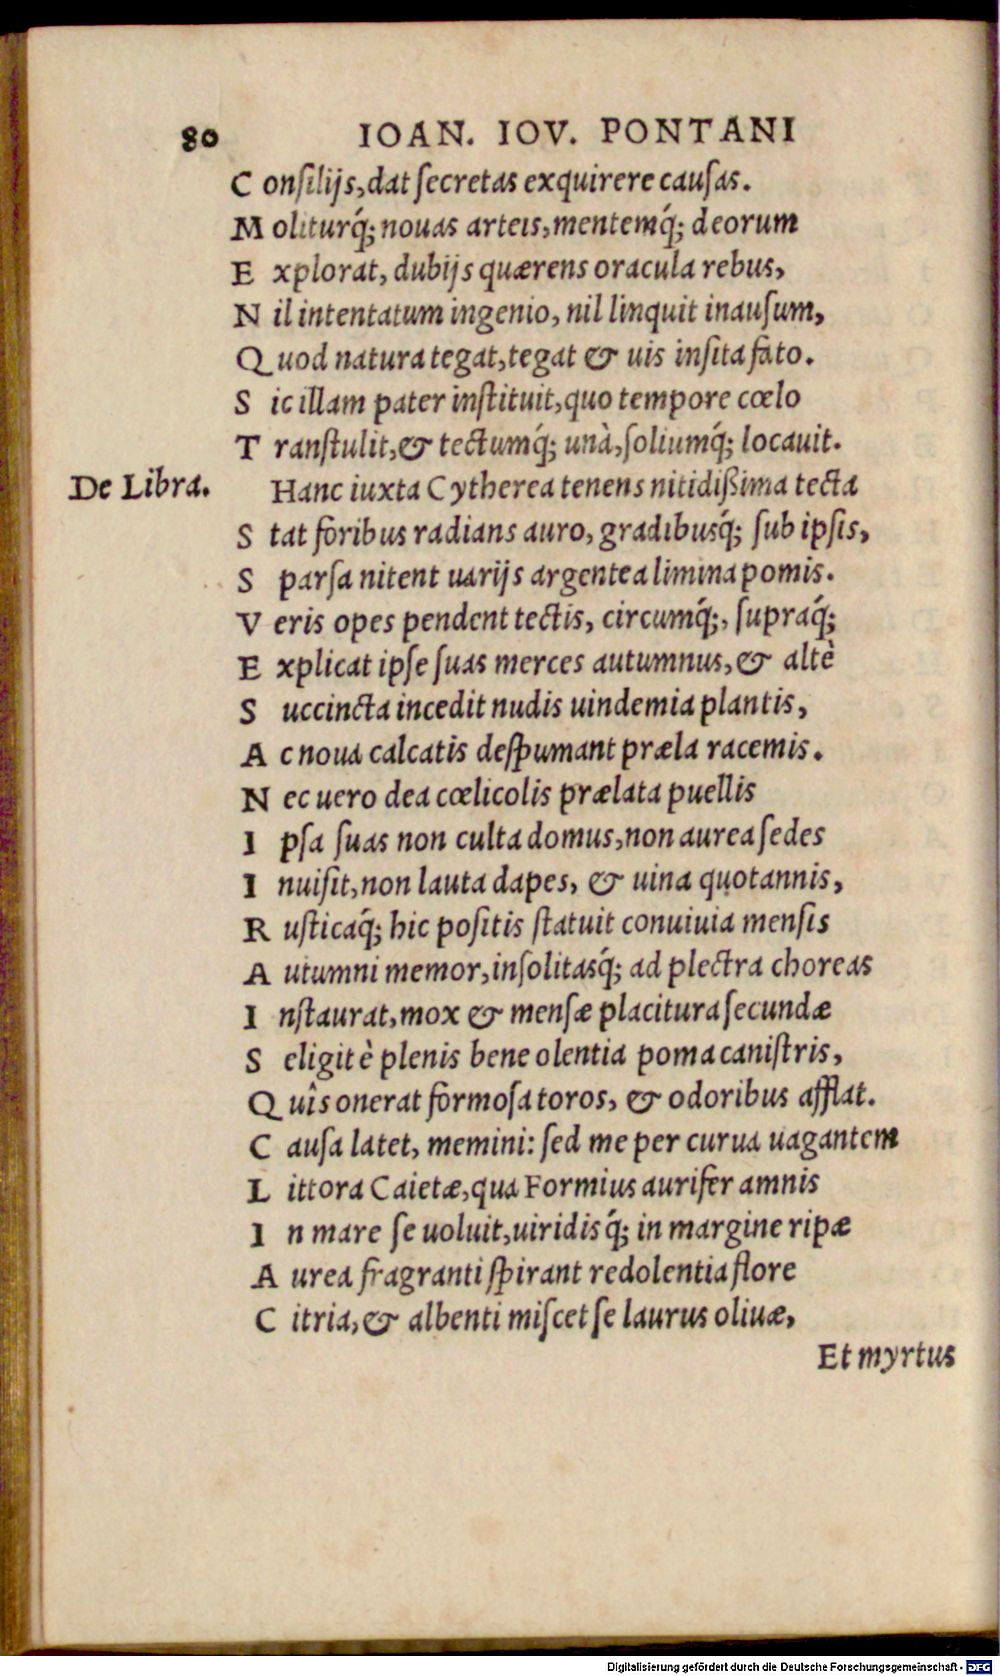 80 IOAN. IOV. PONTANI
C onſilijs, dat ſecretas exquirere cauſas.
M oliturq́; nouas arteis, mentemq́; deorum
E xplorat, dubijs quærens oracula rebus,
N il intentatum ingenio, nil linquit inauſum,
Q uod natura tegat, tegat & uis inſita fato.
S ic illam pater inſtituit, quo tempore cœlo
T ranſtulit, & tectumq́; unà, ſoliumq́; locauit.
De Libra. Hanc iuxta Cytherea tenens nitidißima tecta
S tat foribus radians auro, gradibusq́; ſub ipſis,
S parſa nitent uarijs argentea limina pomis.
V eris opes pendent tectis, circumq́;, ſupraq́;
E xplicat ipſe ſuas merces autumnus, & altè
S uccincta incedit nudis uindemia plantis,
A c noua calcatis deſpumant præla racemis.
N ec uero dea cœlicolis prælata puellis
I pſa ſuas non culta domus, non aurea ſedes
I nuiſit, non lauta dapes, & uina quotannis,
R uſticaq́; hic poſitis ſtatuit conuiuia menſis
A utumni memor, inſolitasq́; ad plectra choreas
I nſtaurat, mox & menſæ placitura ſecundæ
S eligit è plenis bene olentia poma caniſtris,
Q uîs onerat formoſa toros, & odoribus afflat.
C auſa latet, memini: ſed me per curua uagantem
L ittora Caietæ, qua Formius aurifer amnis
I n mare ſe uoluit, uiridisq́; in margine ripæ
A urea fragranti ſpirant redolentia flore
C itria, & albenti miſcet ſe laurus oliuæ,
Et myrtus
Digitalisierung gefördert durch die Deutsche Forschungsgemeinschaft - DFG